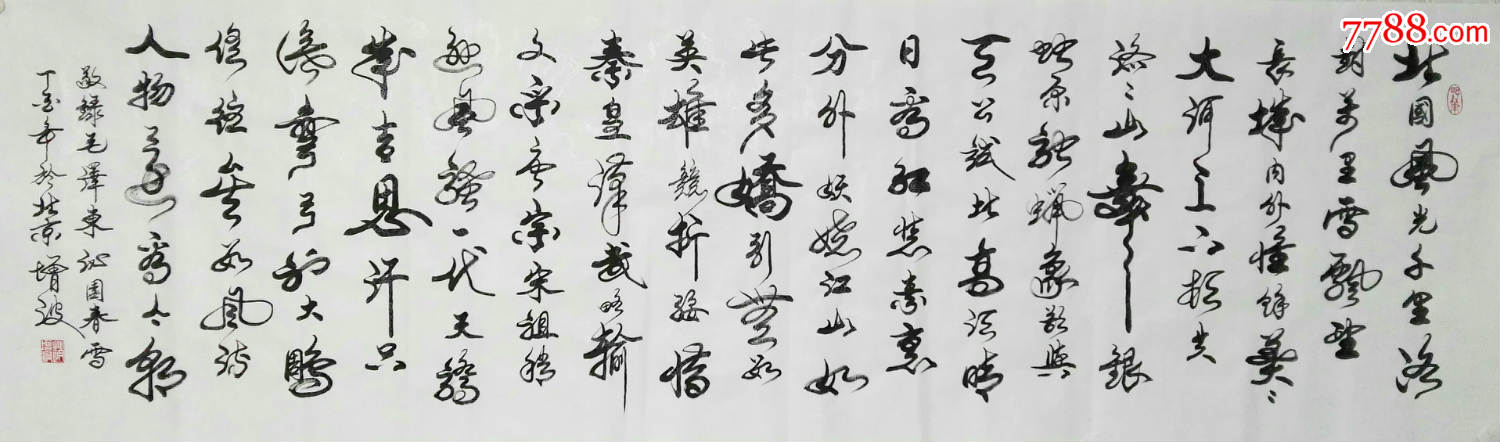 北国風光千里冰
封萬里雪飄望
長城內外惟餘莽〻
大河上下頓失
滔〻山舞
銀
蛇原馳蠟象欲與
天公試比高須晴
日看紅裝素裹
分外妖嬈江山如
此多嬌引無數
英雄競折腰惜
秦皇漢武略輸
文采唐宗宋祖稍
遜風騷一代天驕
成吉思汗只
識彎弓射大鵰
俱往矣數風流
人物還看今朝
敬錄毛澤東沁園春雪
丁酉年於北京增波
7788.com